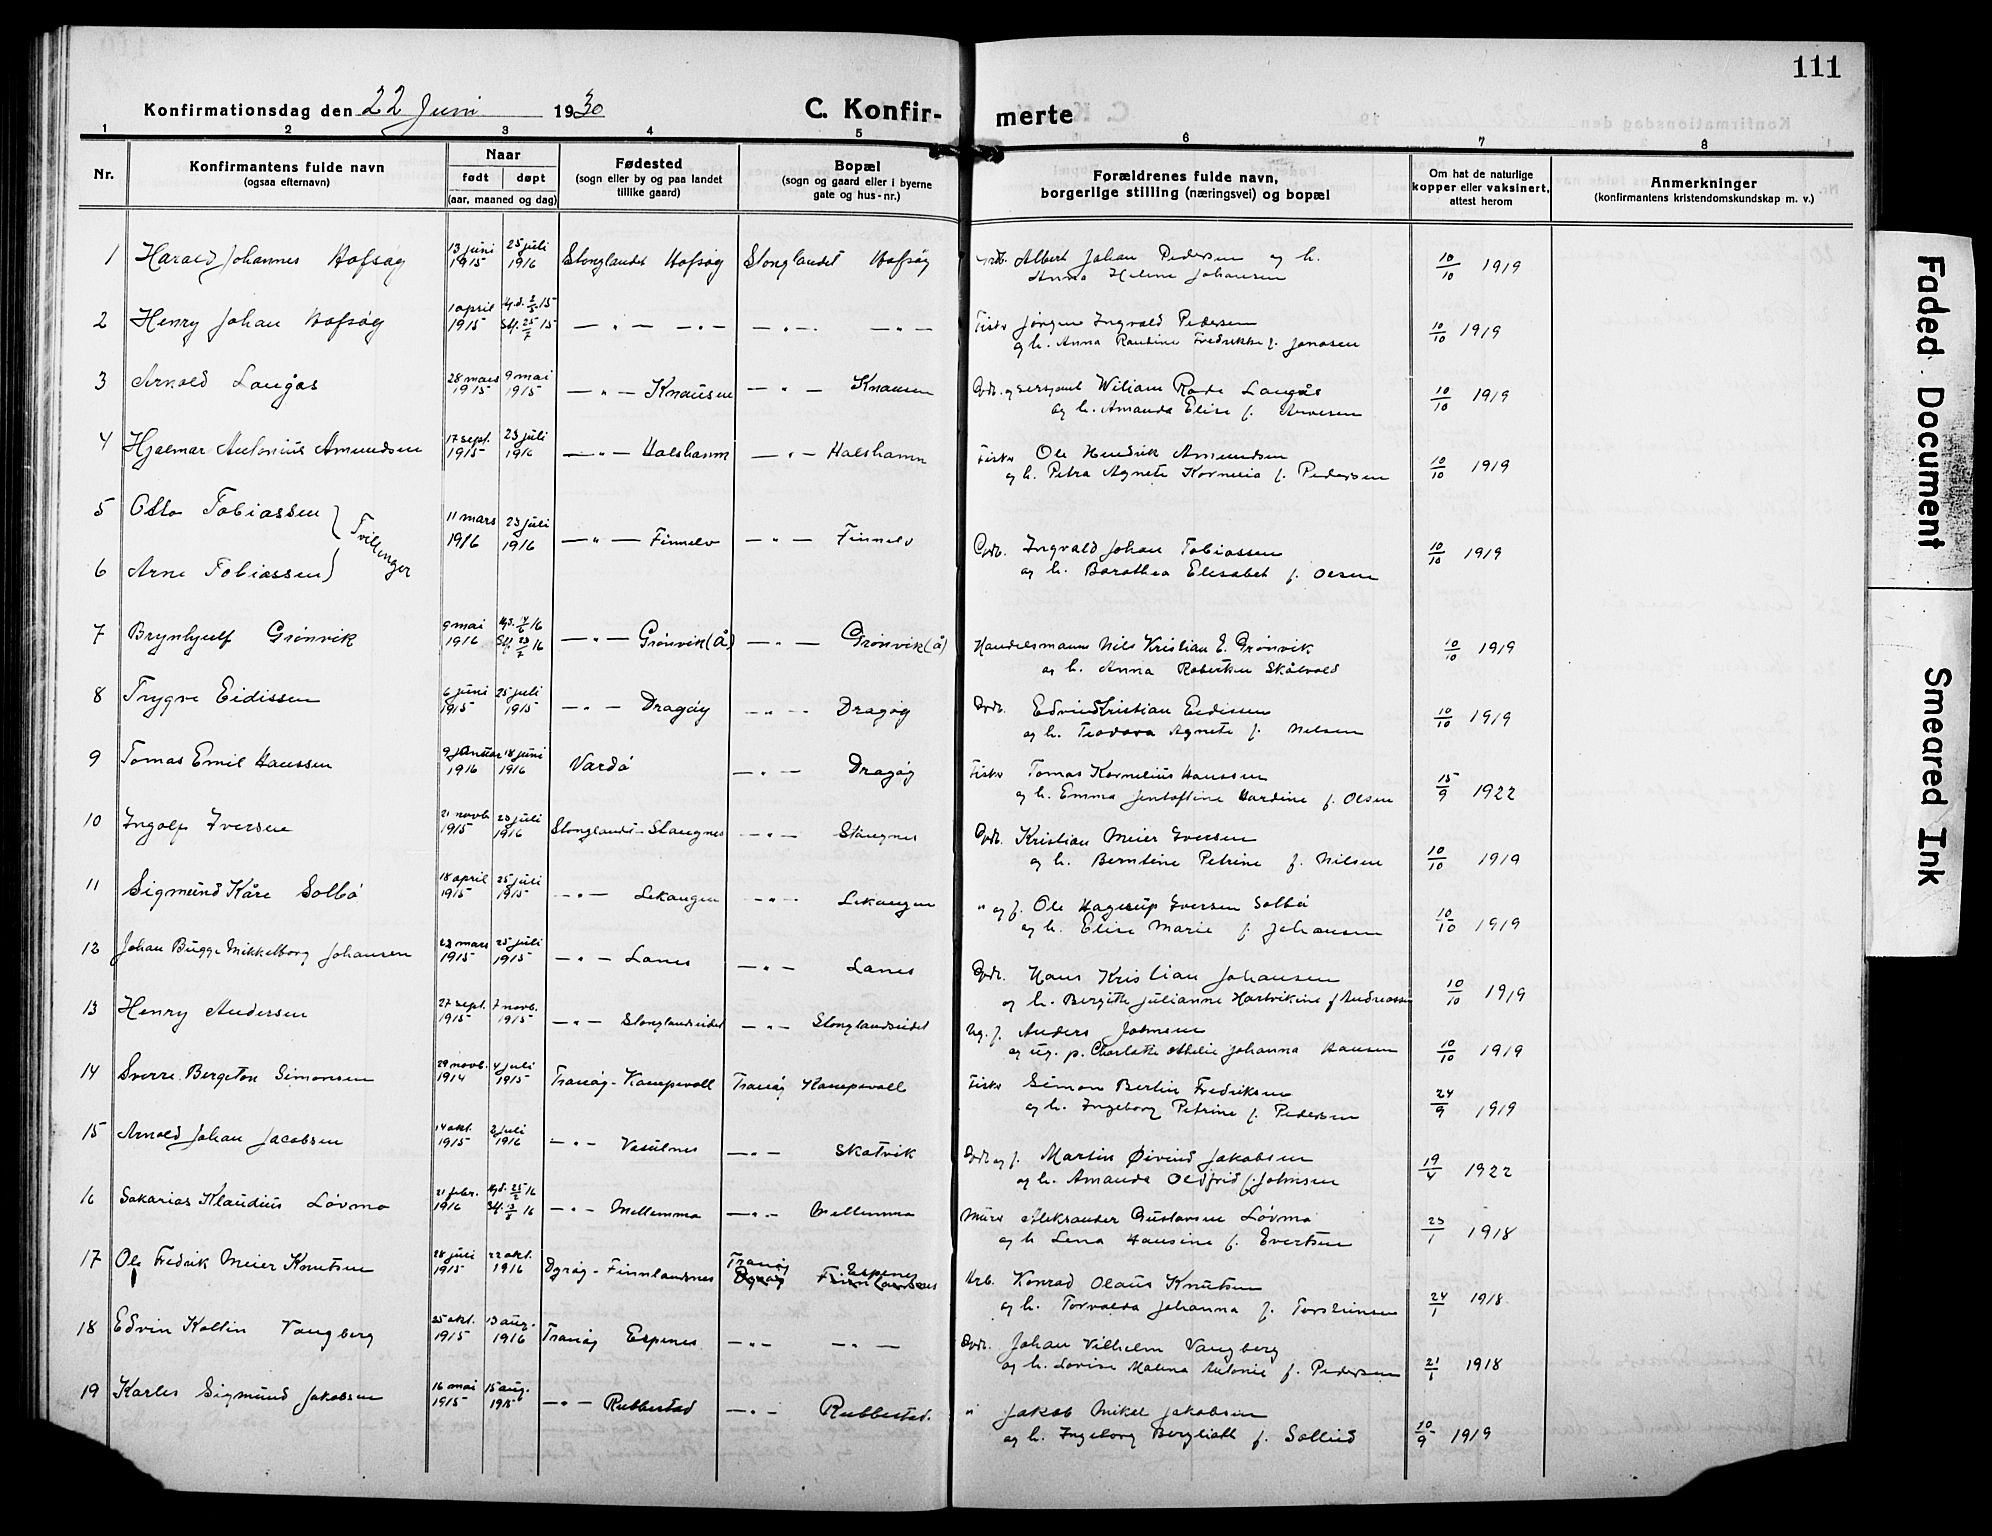 111
Konfirmationsdag den 22 Juni 1930
C. Konfirmerte
1 2 3 4 5 6 7 8
Nr.
Konfirmantens fulde navn
(ogsaa efternavn)
Naar
født døpt
(aar, maaned og dag)
Fødested
(sogn eller by og paa landet
tillike gaard)
Bopæl
(sogn og gaard eller i byerne
gate og hus-nr.)
Forældrenes fulde navn,
borgerlige stilling (næringsvei) og bopæl
Om hat de naturlige
kopper eller vaksinert,
attest herom
Anmerkninger
(konfirmantens kristendomskundskap m. v.)
1 Harald Johannes Hofsøy 13 juni 1915 25 juli 1916 Stonglandet Hofsøy Stonglandet Hofsøy Albert Johan Pedersen og h.
Anna Helene Johansen 10/10 1919
2 Henry Johan Hofsøy 1 april 1915 Hj.d. 2/5 15 Stf. 25/7 15 — " — — " — — " — — " — Fisker Jørgen Ingvald Pedersen
og h. Anna Randine Fredrikke f. Jonasen 10/10 1919
3 Arnold Langås 28 mars 1915 9 mai 1915 — " — Knausen — " — Knausen Gdb. og sersjant Wiliam Rode Langås
og h. Amanda Elise f. Arvesen 10/10 1919
4 Hjalmar Antonius Amundsen 17 sept. 1915 23 juli 1916 — " — Halshamn — " — Halshamn Fisker Ole Hendrik Amundsen
og h. Petra Agnete Kornelia f. Pedersen 10/10 1919
5 Otto Tobiassen } Tvillinger 11 mars 1916 23 juli 1916 — " — Finnelv — " — Finnelv Gdb. Ingvald Johan Tobiassen
6 Arne Tobiassen og h. Barothea Elisabet f. Olsen 10/10 1919
7 Brynhjulf Grønvik 9 mai 1916 Hj.d. 4/6 16 Stf. 23/7 16 — " — Grønvik (Å) — " — Grønvik (Å) Handelsmann Nils Kristian E. Grønvik
og h. Anna Robertine Skålvold 10/10 1919
8 Trygve Eidissen 6 juni 1915 25 juli 1915 — " — Dragøy — " — Dragøy Gdb. Edvind Kristian Eidissen
og h. Teodora Agnete f. Nilsen 10/10 1919
9 Tomas Emil Hanssen 9 januar 1916 18 juni 1916 Vardø — " — Dragøy Fisker Tomas Kornelius Hanssen
og h. Emma Jentoftine Hardine f. Olsen 15/9 1922
10 Ingolf Iversen 21 novb. 1915 23 juli 1916 Stonglandet - Stangnes — " — Stangnes Gdb. Kristian Meier Iversen
og h. Berntine Petrine f. Nilsen 10/10 1919
11 Sigmund Kåre Solbø 18 april 1915 25 juli 1915 — " — Lekangen — " — Lekangen " og f. Ole Hagerup Iversen Solbø
og h. Elise Marie f. Johansen 10/10 1919
12 Johan Bugge Mikkelborg Johansen 23 mars 1915 25 juli 1915 — " — Lanes — " — Lanes Gdb. Hans Kristian Johansen
og h. Bergitte Julianne Hartvikine f. Andreassen 10/10 1919
13 Henry Andersen 27 sept. 1915 7 novb. 1915 — " — Stonglandseidet — " — Stonglandseidet Ug. f. Anders Johnsen
og ug. p. Charlotte Athelie Johanna Hansen 10/10 1919
14 Sverre Bergeton Simonsen 29 novb. 1914 4 juli 1915 Tranøy - Kampevoll Tranøy Kampevoll Fisker Simon Bertin Fredriksen
og h. Ingeborg Petrine f. Pedersen 24/9 1919
15 Arnold Johan Jacobsen 14 okt. 1915 2 juli 1916 — " — Vasulnes — " — Skatvik Gdb. og f. Martin Øivind Jakobsen
og h. Amanda Oldfrid f. Johnsen 19/4 1922
16 Sakarias Klaudius Løvmo 21 febr. 1916 Hj.d. 25/2 16 Stf. 13/8 16 — " — Mellemmo — " — Mellemmo Murer Aleksander Gustavsen Løvmo
og h Lena Hansine f. Evertsen 23/1 1918
17 Ole Fredrik Meier Knutsen 28 juli 1915 22 okt. 1916 Dyrøy - Finnlandnes Tranøy Espenes Arb. Konrad Olaus Knutsen
og h. Torvalda Johanna f. Torsteinsen 24/1 1918
18 Edvin Kollin Vangberg 25 okt. 1915 13 aug. 1916 Tranøy Espenes — " — — " — Gdb. Johan Vilhelm Vangberg
og h. Lovise Malena Antonie f. Pedersen 21/1 1918
19 Karles Sigmund Jakobsen 16 mai 1915 15 aug. 1915 — " — Rubbestad — " — Rubbestad. " Jakob Mikel Jakobsen
og h. Ingeborg Bergliott f. Sollid 10/9 1919
Faded Document
Smeared Ink